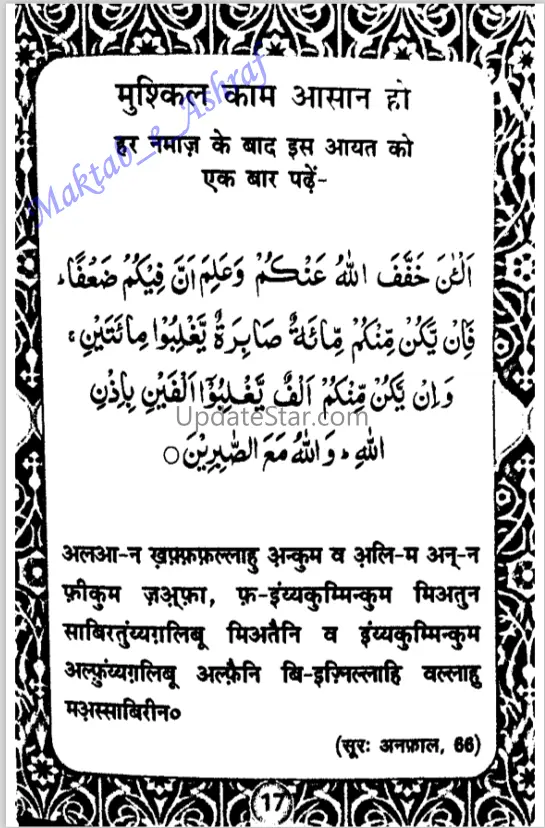 मुश्किल काम आसान हो
हर नमाज़ के बाद इस आयत को
एक बार पढ़ें-
Maktab_e_Ashraf
اَلْـٰٔنَ خَفَّفَ اللّٰهُ عَنْكُمْ وَعَلِمَ اَنَّ فِیْكُمْ ضَعْفًا ؕ
فَاِنْ یَّكُنْ مِّنْكُمْ مِّائَةٌ صَابِرَةٌ یَّغْلِبُوْا مِائَتَیْنِ ۚ
وَاِنْ یَّكُنْ مِّنْكُمْ اَلْفٌ یَّغْلِبُوْۤا اَلْفَیْنِ بِاِذْنِ
UpdateStar.com
اللّٰهِ ؕ وَاللّٰهُ مَعَ الصّٰبِرِیْنَ ○
अलआ-न ख़फ़्फ़फ़ल्लाहु अ़न्कुम व अ़लि-म अन्-न
फ़ीकुम ज़अ़्फ़ा, फ़-इंय्यकुम्मिन्कुम मिअतुन
साबिरतुंय्यग़लिबू मिअतैनि व इंय्यकुम्मिन्कुम
अल्फ़ुंय्यग़लिबू अल्फ़ैनि बि-इज़्निल्लाहि वल्लाहु
मअ़स्साबिरीन०
(सूरः अनफ़ाल, 66)
17